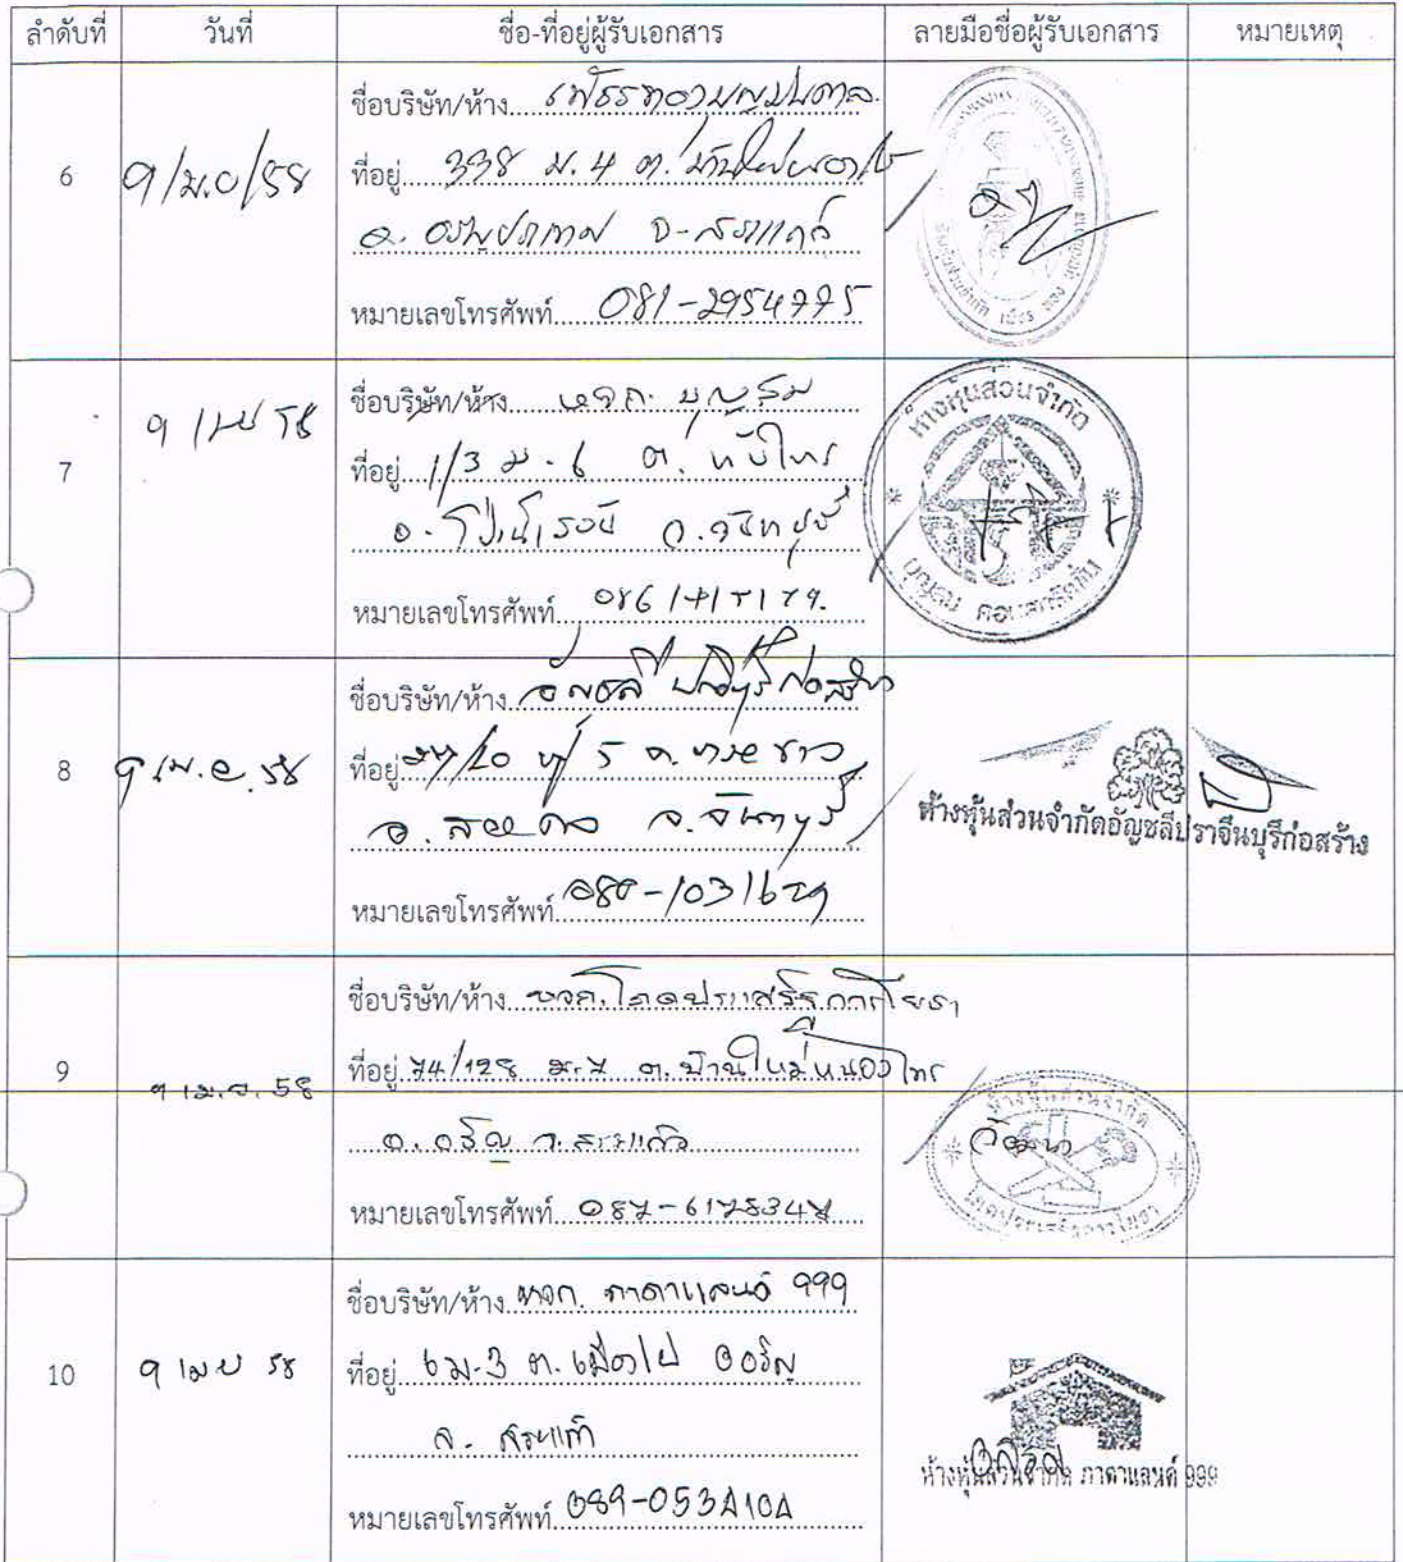 ลำดับที่ วันที่ ชื่อ-ที่อยู่ผู้รับเอกสาร ลายมือชื่อผู้รับเอกสาร หมายเหตุ
6 9/ม.ย/58
ชื่อบริษัท/ห้าง เพชรทอง
ที่อยู่ 338 ม. 4 ต.
อ. อรัญประเทศ จ-สระแก้ว
หมายเลขโทรศัพท์ 081-2954775
ห้างหุ้นส่วนจำกัด เพชร ทอง
7 9 เมย 58
ชื่อบริษัท/ห้าง หจก. บุญสม
ที่อยู่ 1/3 ม.6 ต. ทับไทร
อ. โป่งน้ำร้อน จ.จันทบุรี
หมายเลขโทรศัพท์
ห้างหุ้นส่วนจำกัด
บุญสม คอนสตรัคชั่น
8 9 เม.ย. 58
ชื่อบริษัท/ห้าง อัญชลีปราจีนบุรีก่อสร้าง
ที่อยู่ /20 ม 5 ต. ทรายขาว
อ. สอยดาว จ. จันทบุรี
หมายเลขโทรศัพท์
ห้างหุ้นส่วนจำกัดอัญชลีปราจีนบุรีก่อสร้าง
9 9 เม.ย. 58
ชื่อบริษัท/ห้าง หจก. โภคประเสริฐการโยธา
ที่อยู่ 74/128 ม.7 ต. บ้านใหม่หนองไทร
อ. อรัญ จ. สระแก้ว
หมายเลขโทรศัพท์ 087-6178347
ห้างหุ้นส่วนจำกัด
โภคประเสริฐการโยธา
10 9 เมย 58
ชื่อบริษัท/ห้าง หจก. ภาดาแลนด์ 999
ที่อยู่ 6 ม.3 ต. เมืองไผ่ อ อรัญ
จ. สระแก้ว
หมายเลขโทรศัพท์ 089-0534104
ห้างหุ้นส่วนจำกัด ภาดาแลนด์ 999